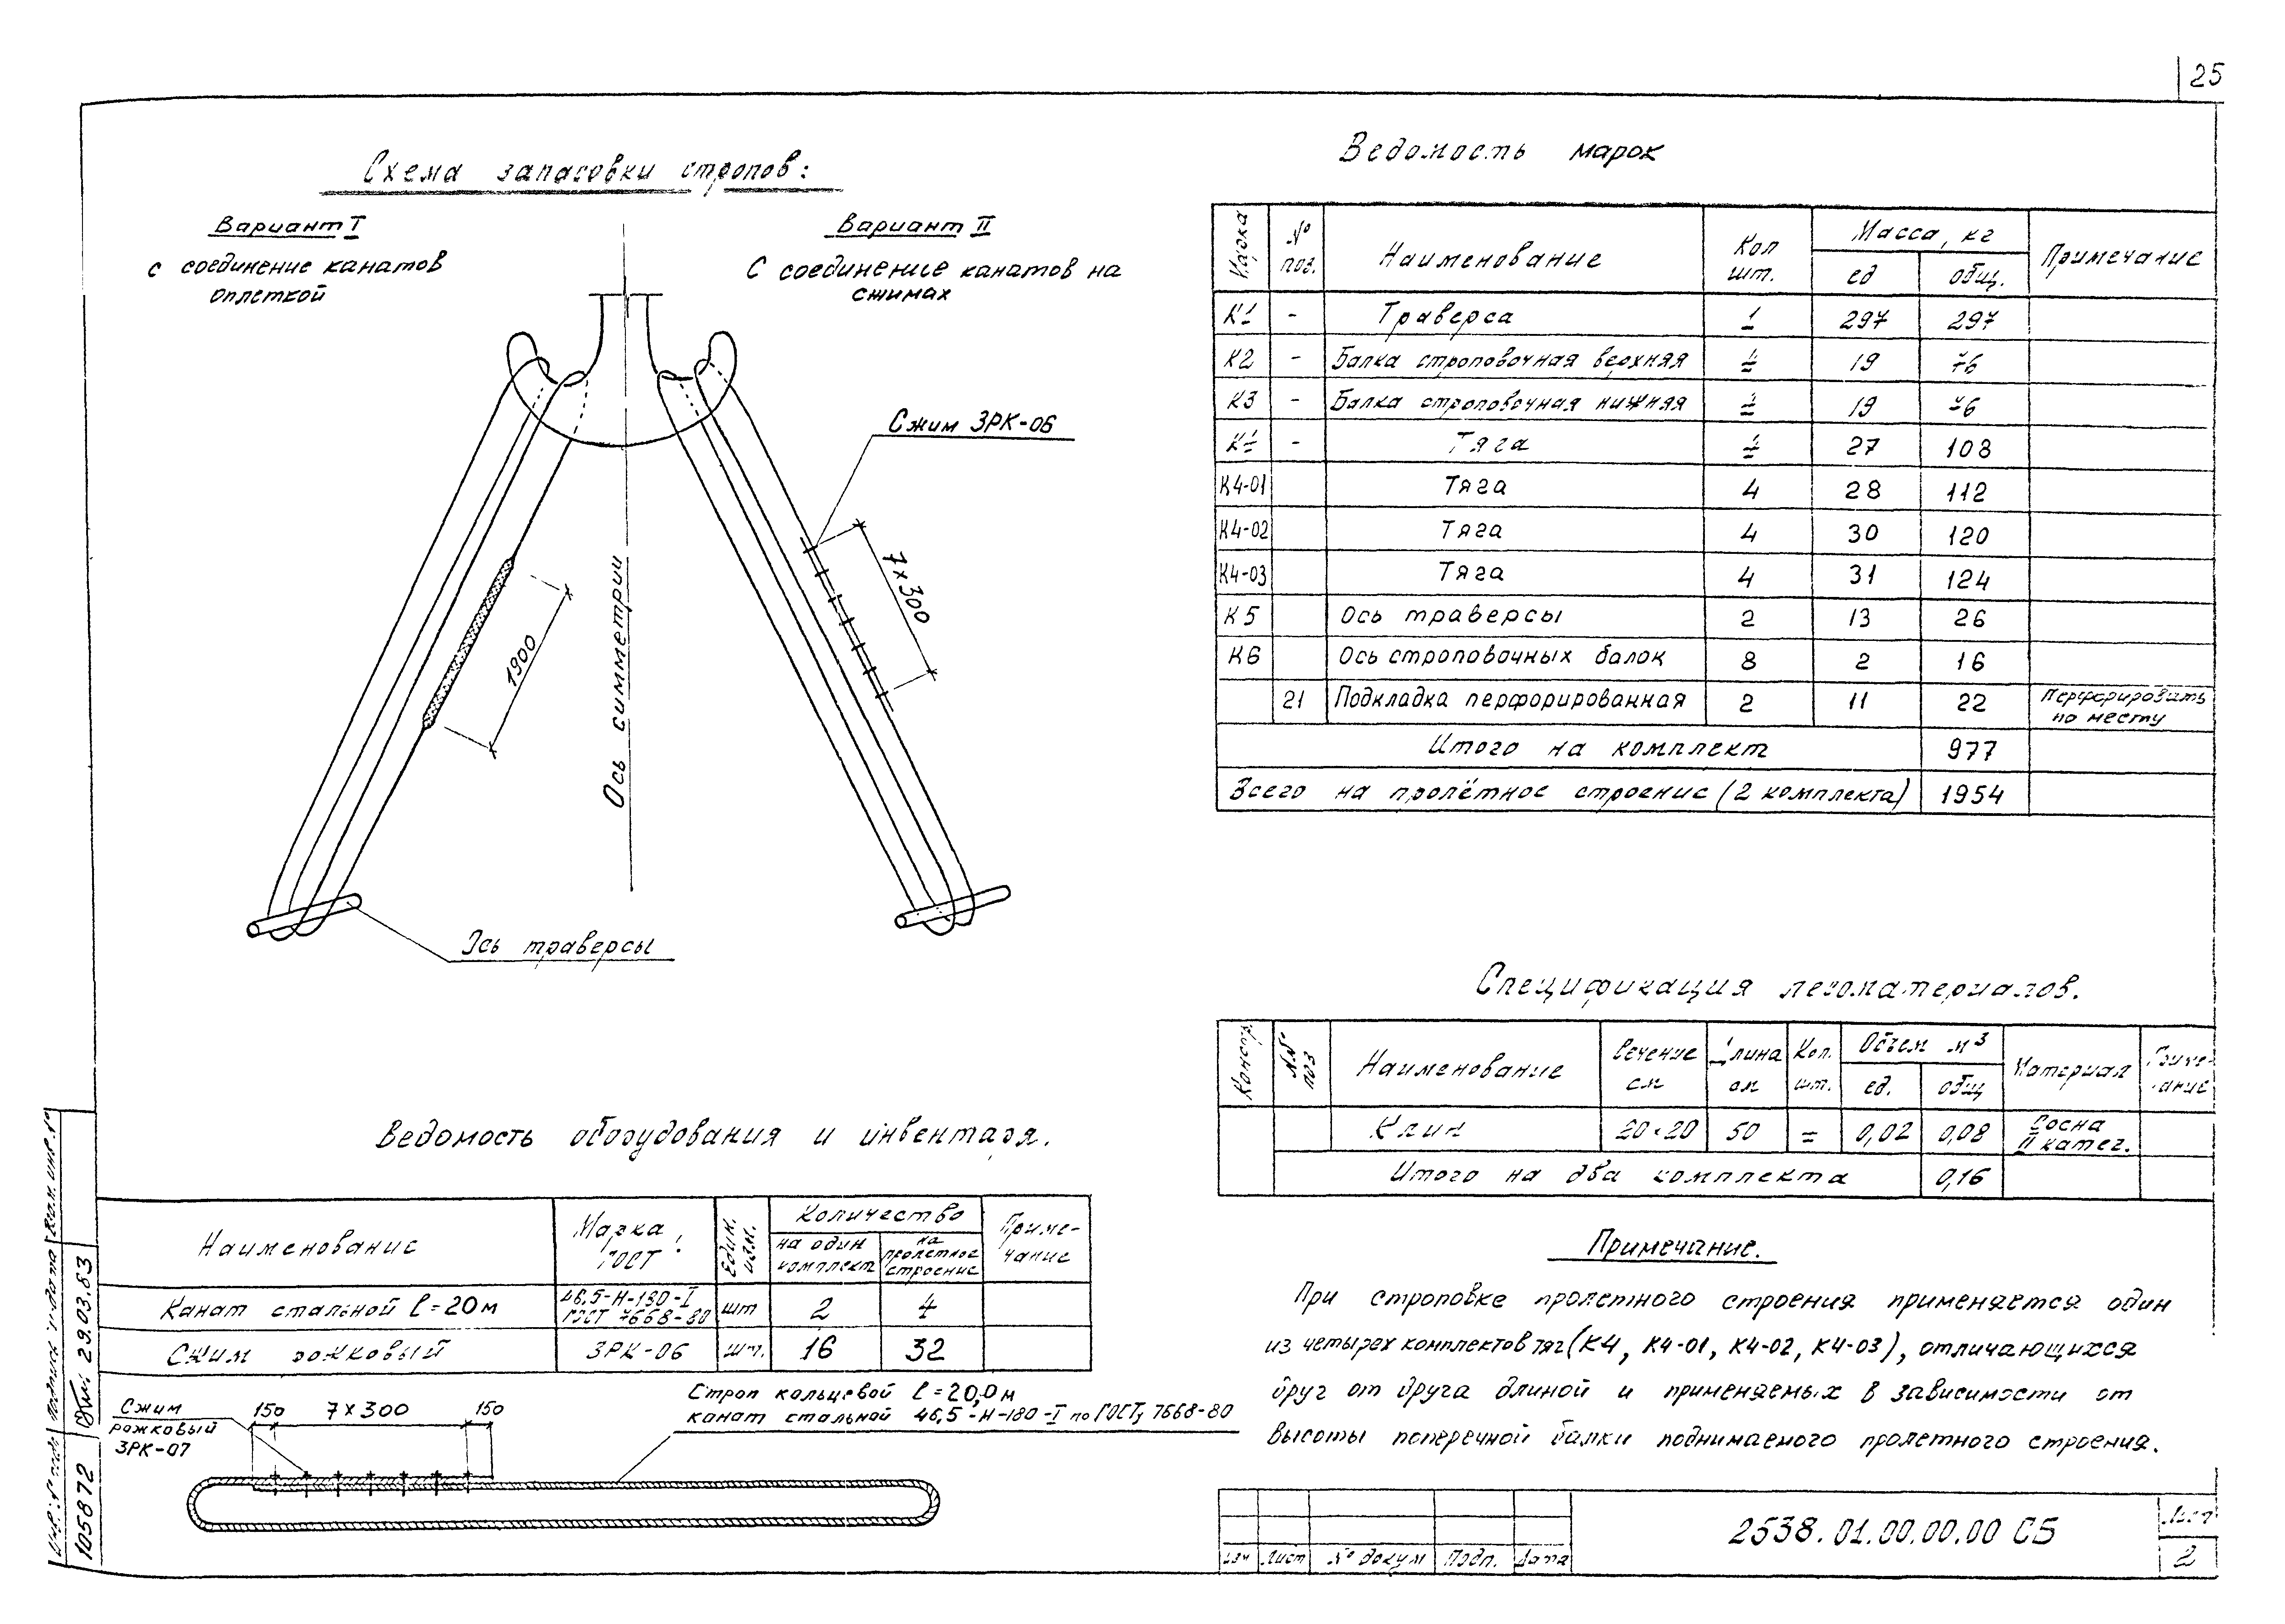 25
Схема запасовки стропов:
Вариант I
с соединение канатов
оплеткой
Вариант II
С соединение канатов на
сжимах
Сжим ЗРК-06
7×300
1900
Ось симметрии
Ось траверсы
Ведомость марок
Марка № поз. Наименование Кол шт. Масса, кг ед общ. Примечание
К1 - Траверса 1 297 297
К2 - Балка строповочная верхняя 4 19 76
К3 - Балка строповочная нижняя 4 19 76
К4 - Тяга 4 27 108
К4-01 Тяга 4 28 112
К4-02 Тяга 4 30 120
К4-03 Тяга 4 31 124
К5 Ось траверсы 2 13 26
К6 Ось строповочных балок 8 2 16
21 Подкладка перфорированная 2 11 22 Перфорировать по месту
Итого на комплект 977
Всего на пролётное строение (2 комплекта) 1954
Спецификация лесоматериалов.
Констр. №№ поз Наименование Сечение см Длина см Кол. шт. Объем м³ ед. общ Материал Примечание
Клин 20×20 50 4 0,02 0,08 Сосна II катег.
Итого на два комплекта 0,16
Ведомость оборудования и инвентаря.
Наименование Марка, ГОСТ Един. изм. Количество на один комплект на пролетное строение Приме-чание
Канат стальной ℓ=20м 46,5-Н-180-I ГОСТ 7668-80 шт 2 4
Сжим рожковый ЗРК-06 шт. 16 32
Сжим
рожковый
ЗРК-07
150 7×300 150
Строп кольцевой ℓ=20,0м
канат стальной 46,5-Н-180-I по ГОСТ 7668-80
Примечание.
При строповке пролетного строения применяется один
из четырех комплектов тяг (К4, К4-01, К4-02, К4-03), отличающихся
друг от друга длиной и применяемых в зависимости от
высоты поперечной балки поднимаемого пролетного строения.
Изм Лист № докум Подп. Дата
2538.01.00.00.00 СБ
Лист
2
Инв. № подл Подпись и дата Взам. инв. №
105872 29.03.83